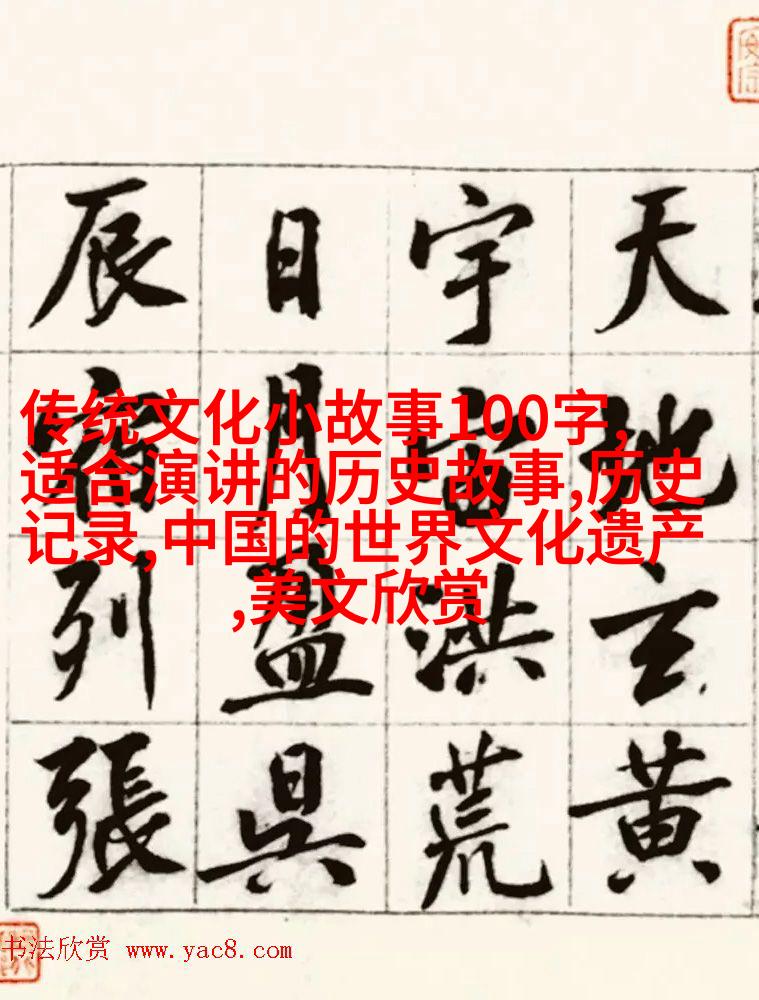 天地玄黄
宇宙洪荒
日月盈昃
辰宿列張
传统文化小故事100字,
适合演讲的历史故事,历史
记录,中国的世界文化遗产
,美文欣赏
书法欣赏 www.yac8.com